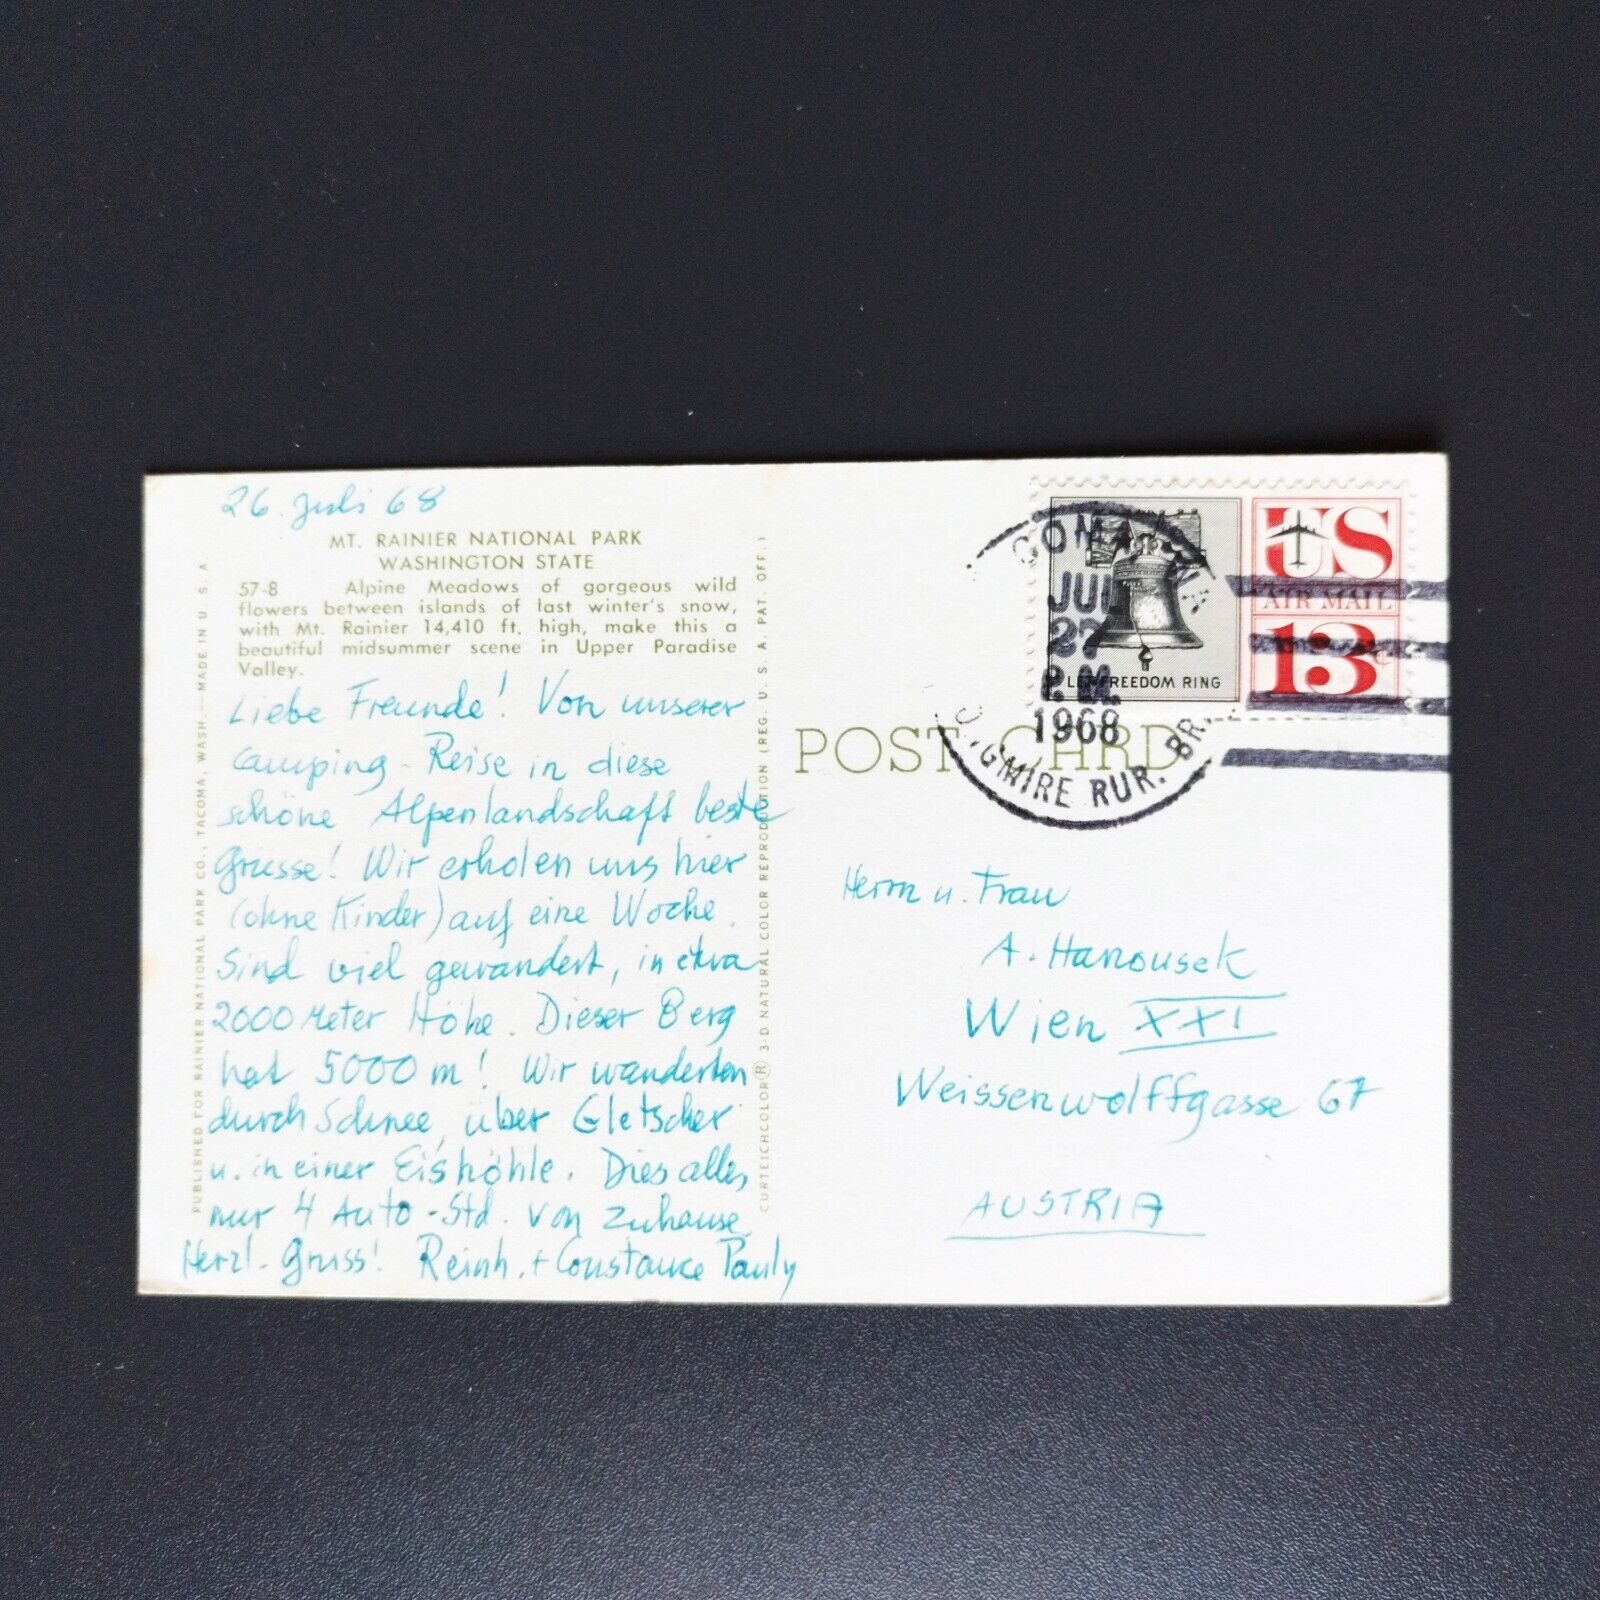 26. Juli 68
MT. RAINIER NATIONAL PARK
WASHINGTON STATE
57-8 Alpine Meadows of gorgeous wild
flowers between islands of last winter's snow,
with Mt. Rainier 14,410 ft. high, make this a
beautiful midsummer scene in Upper Paradise
Valley.
Liebe Freunde! Von unserer
Camping-Reise in diese
schöne Alpenlandschaft beste
Grüsse! Wir erholen uns hier
(ohne Kinder) auf eine Woche.
Sind viel gewandert, in etwa
2000 Meter Höhe. Dieser Berg
hat 5000 m! Wir wanderten
durch Schnee, über Gletscher
u. in einer Eishöhle. Dies alles,
nur 4 Auto-Std. von zuhause.
Herzl. Gruss! Reinh. + Constance Pauly
PUBLISHED FOR RAINIER NATIONAL PARK CO., TACOMA, WASH.—MADE IN U. S. A.
CURTEICHCOLOR ® 3-D NATURAL COLOR REPRODUCTION (REG. U. S. A. PAT. OFF.)
POST CARD
JUL
27
P.M.
1968
RUR. BR.
LET FREEDOM RING
US
AIR MAIL
13c
Herrn u. Frau
A. Hanousek
Wien XXI
Weissenwolffgasse 67
AUSTRIA